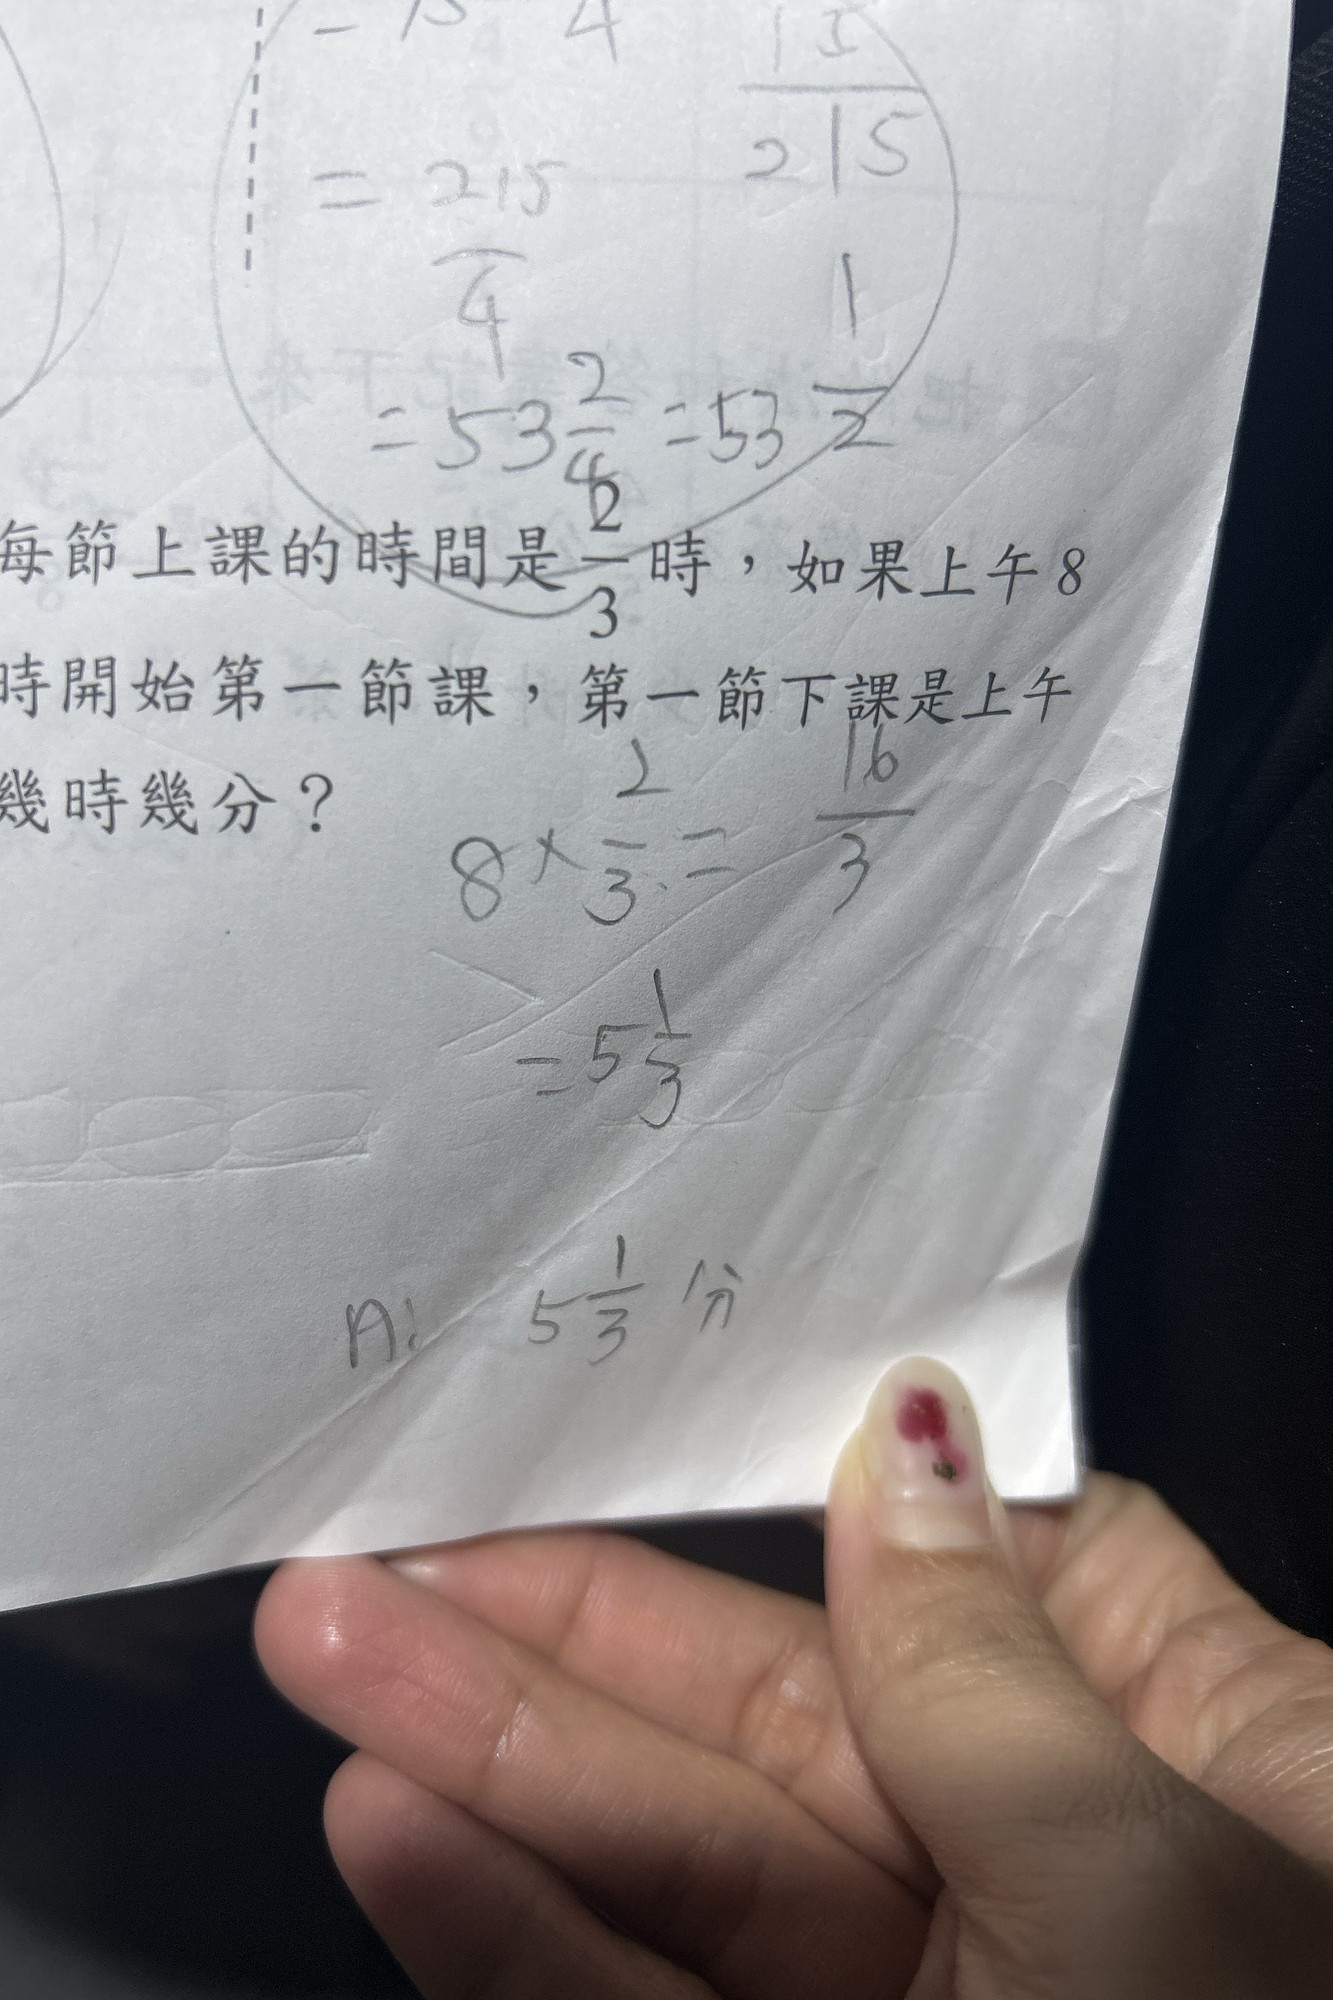 15
= 215/4 215
= 53 2/4 = 53 1/2
每節上課的時間是2/3時，如果上午8
時開始第一節課，第一節下課是上午
幾時幾分？
8 × 2/3 = 16/3
= 5 1/3
A: 5 1/3 分